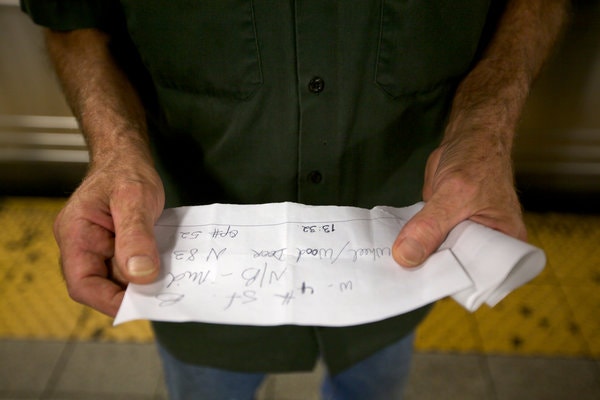 W. 4 St. B
N/B - mid
Wheel/Wood Door N 83
13:32 52